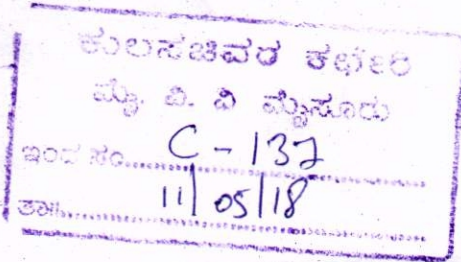 ಕುಲಸಚಿವರ ಕಛೇರಿ
ಮೈ. ವಿ. ವಿ ಮೈಸೂರು
ಇಂದ ಸಂ.......... C - 137
ತಾ|| .......... 11/05/18